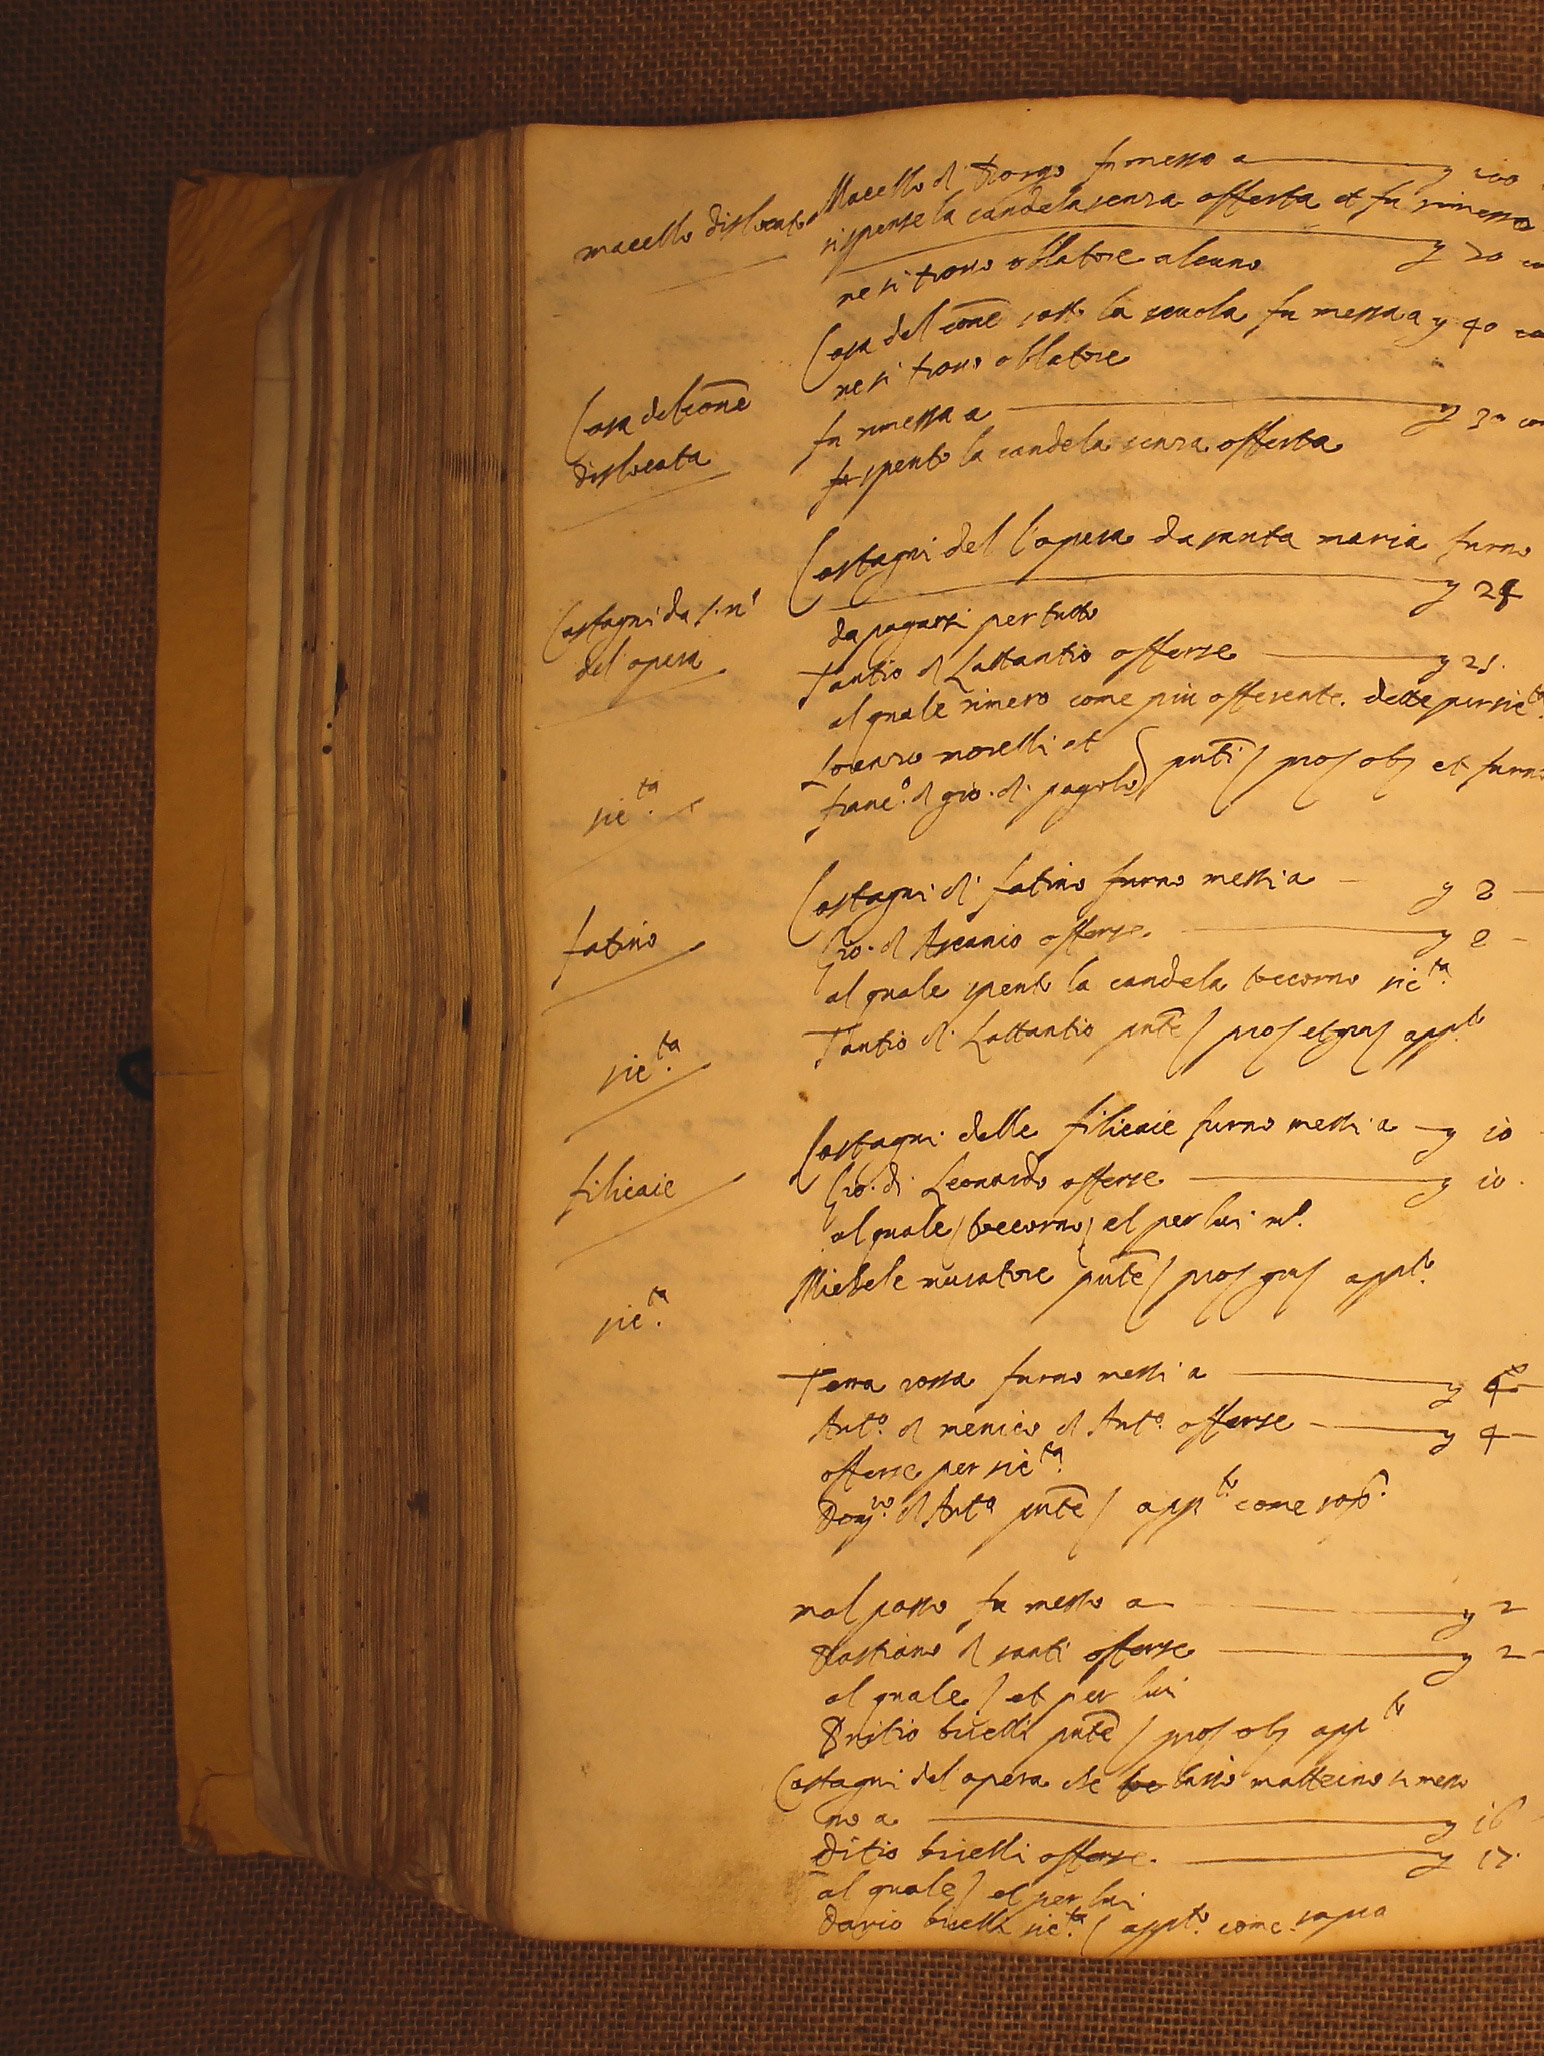 macello dislocato
Macello di Borgo fu messo a y 100
si spense la candela senza offerta et fu rimesso
y 70
ne si trovo oblatore alcuno
Casa del cone dislocata
Casa del cone sotto la scuola fu messa a y 40
ne si trovo oblatore
fu rimessa a y 30
fu spento la candela senza offerta
Castagni da s. m.ª
del opera
Castagni del l'opera da santa maria furno
y 24
da pagarsi per tutto
Tantio di Lattantio offerse y 25.
al quale rimero come più offerente. dette per sic.ta
Lorenzo morelli et
franc.o di gio. di pagolo pnti / pro / ob / et furno
sic.ta
fatino
Castagni di fatino furno messi a y 2
Gio. di Ascanio offerse. y 2
al quale spento la candela toccorno sic.ta
Tantio di Lattantio pnte / pro / et gra / app.to
sic.ta
filicaie
Castagni delle filicaie furno messi a y 10
Gio. di Leonardo offerse y 10.
al quale / toccorno / et per lui m.o
Michele muratore pnte / pro / gra / app.to
sic.ta
Terra rossa furno messi a y
Ant.o di menico di Ant.o offerse y 4
offerse per sic.ta
Dom.co di Ant.o pnte / app.to come sop.a
mal passo fu messo a y 2
Bastiano di santi offerse y 2
al quale / et per lui
britio birelli pnte / pro / ob / app.to
Castagni del opera che lassò matteino si messo
no a y 16
britio birelli offerse. y 17.
al quale / et per lui
Dario birelli sic.ta / app.to come sopra